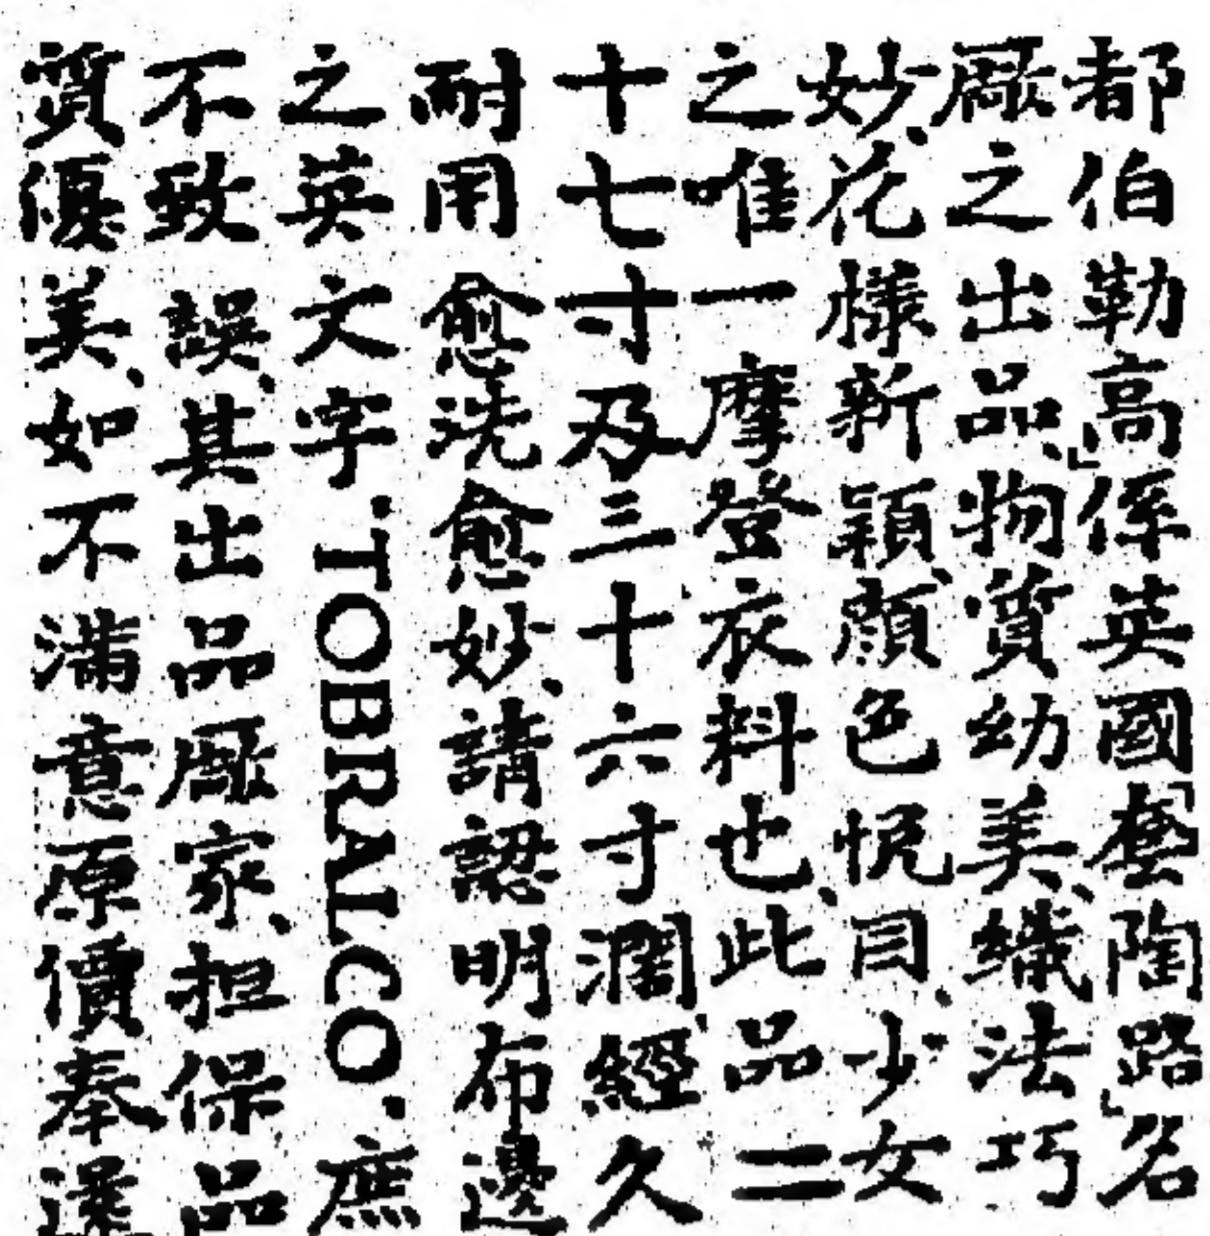 都伯勒高」係英國「套陶路」名
廠之出品、物質幼美、織法巧
妙、花樣新穎、顏色悦目、少女
之唯一摩登衣料也、此品二
十七寸及三十六寸濶、經久
耐用愈洗愈妙、請認明布邊
之英文字'TOBRALCO'庶
不致誤、其出品廠家、担保品
質優美、如不滿意原價奉還